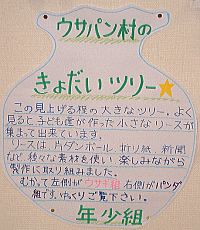 ウサパン村の
きょだいツリー
この見上げる程の大きなツリー。よく
見ると子ども達が作った小さなリースが
集まって出来ています。
リースは、片ダンボール、折り紙、新聞
など、様々な素材を使い、楽しみながら
製作に取り組みました。
むかって左側がウサギ組、右側がパンダ
組です。ゆっくりご覧下さい。
年少組